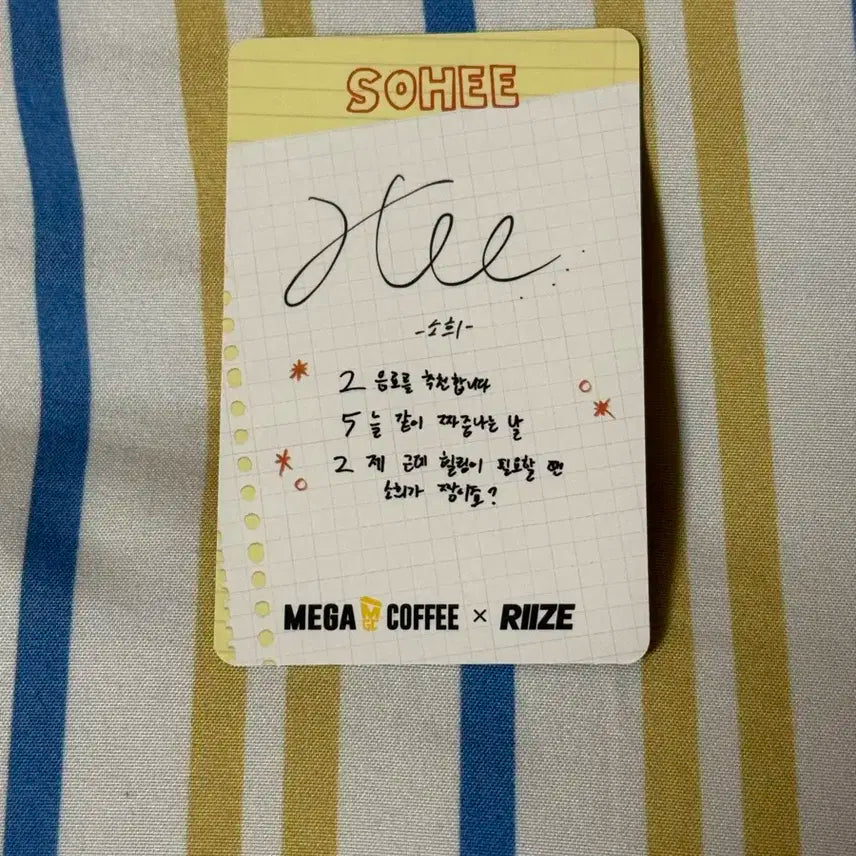 SOHEE
Hee...
-소희-
2 음료를 추천합니다
5 늘 같이 짜증나는 날
2 제 근데 힐링이 필요할 땐
소희가 짱이죠?
MEGA MGC COFFEE × RIIZE